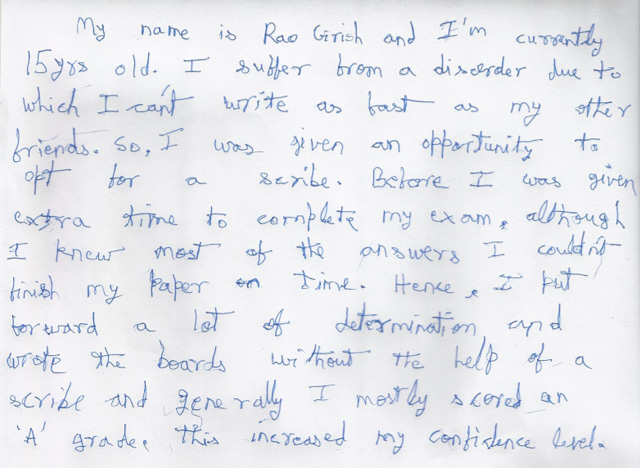 My name is Rao Girish and I'm currently
15yrs old. I suffer from a disorder due to
which I can't write as fast as my other
friends. So, I was given an opportunity to
opt for a scribe. Before I was given
extra time to complete my exam, although
I knew most of the answers I couldn't
finish my paper on time. Hence, I put
forward a lot of determination and
wrote the boards without the help of a
scribe and generally I mostly scored an
'A' grade. this increased my confidence level.